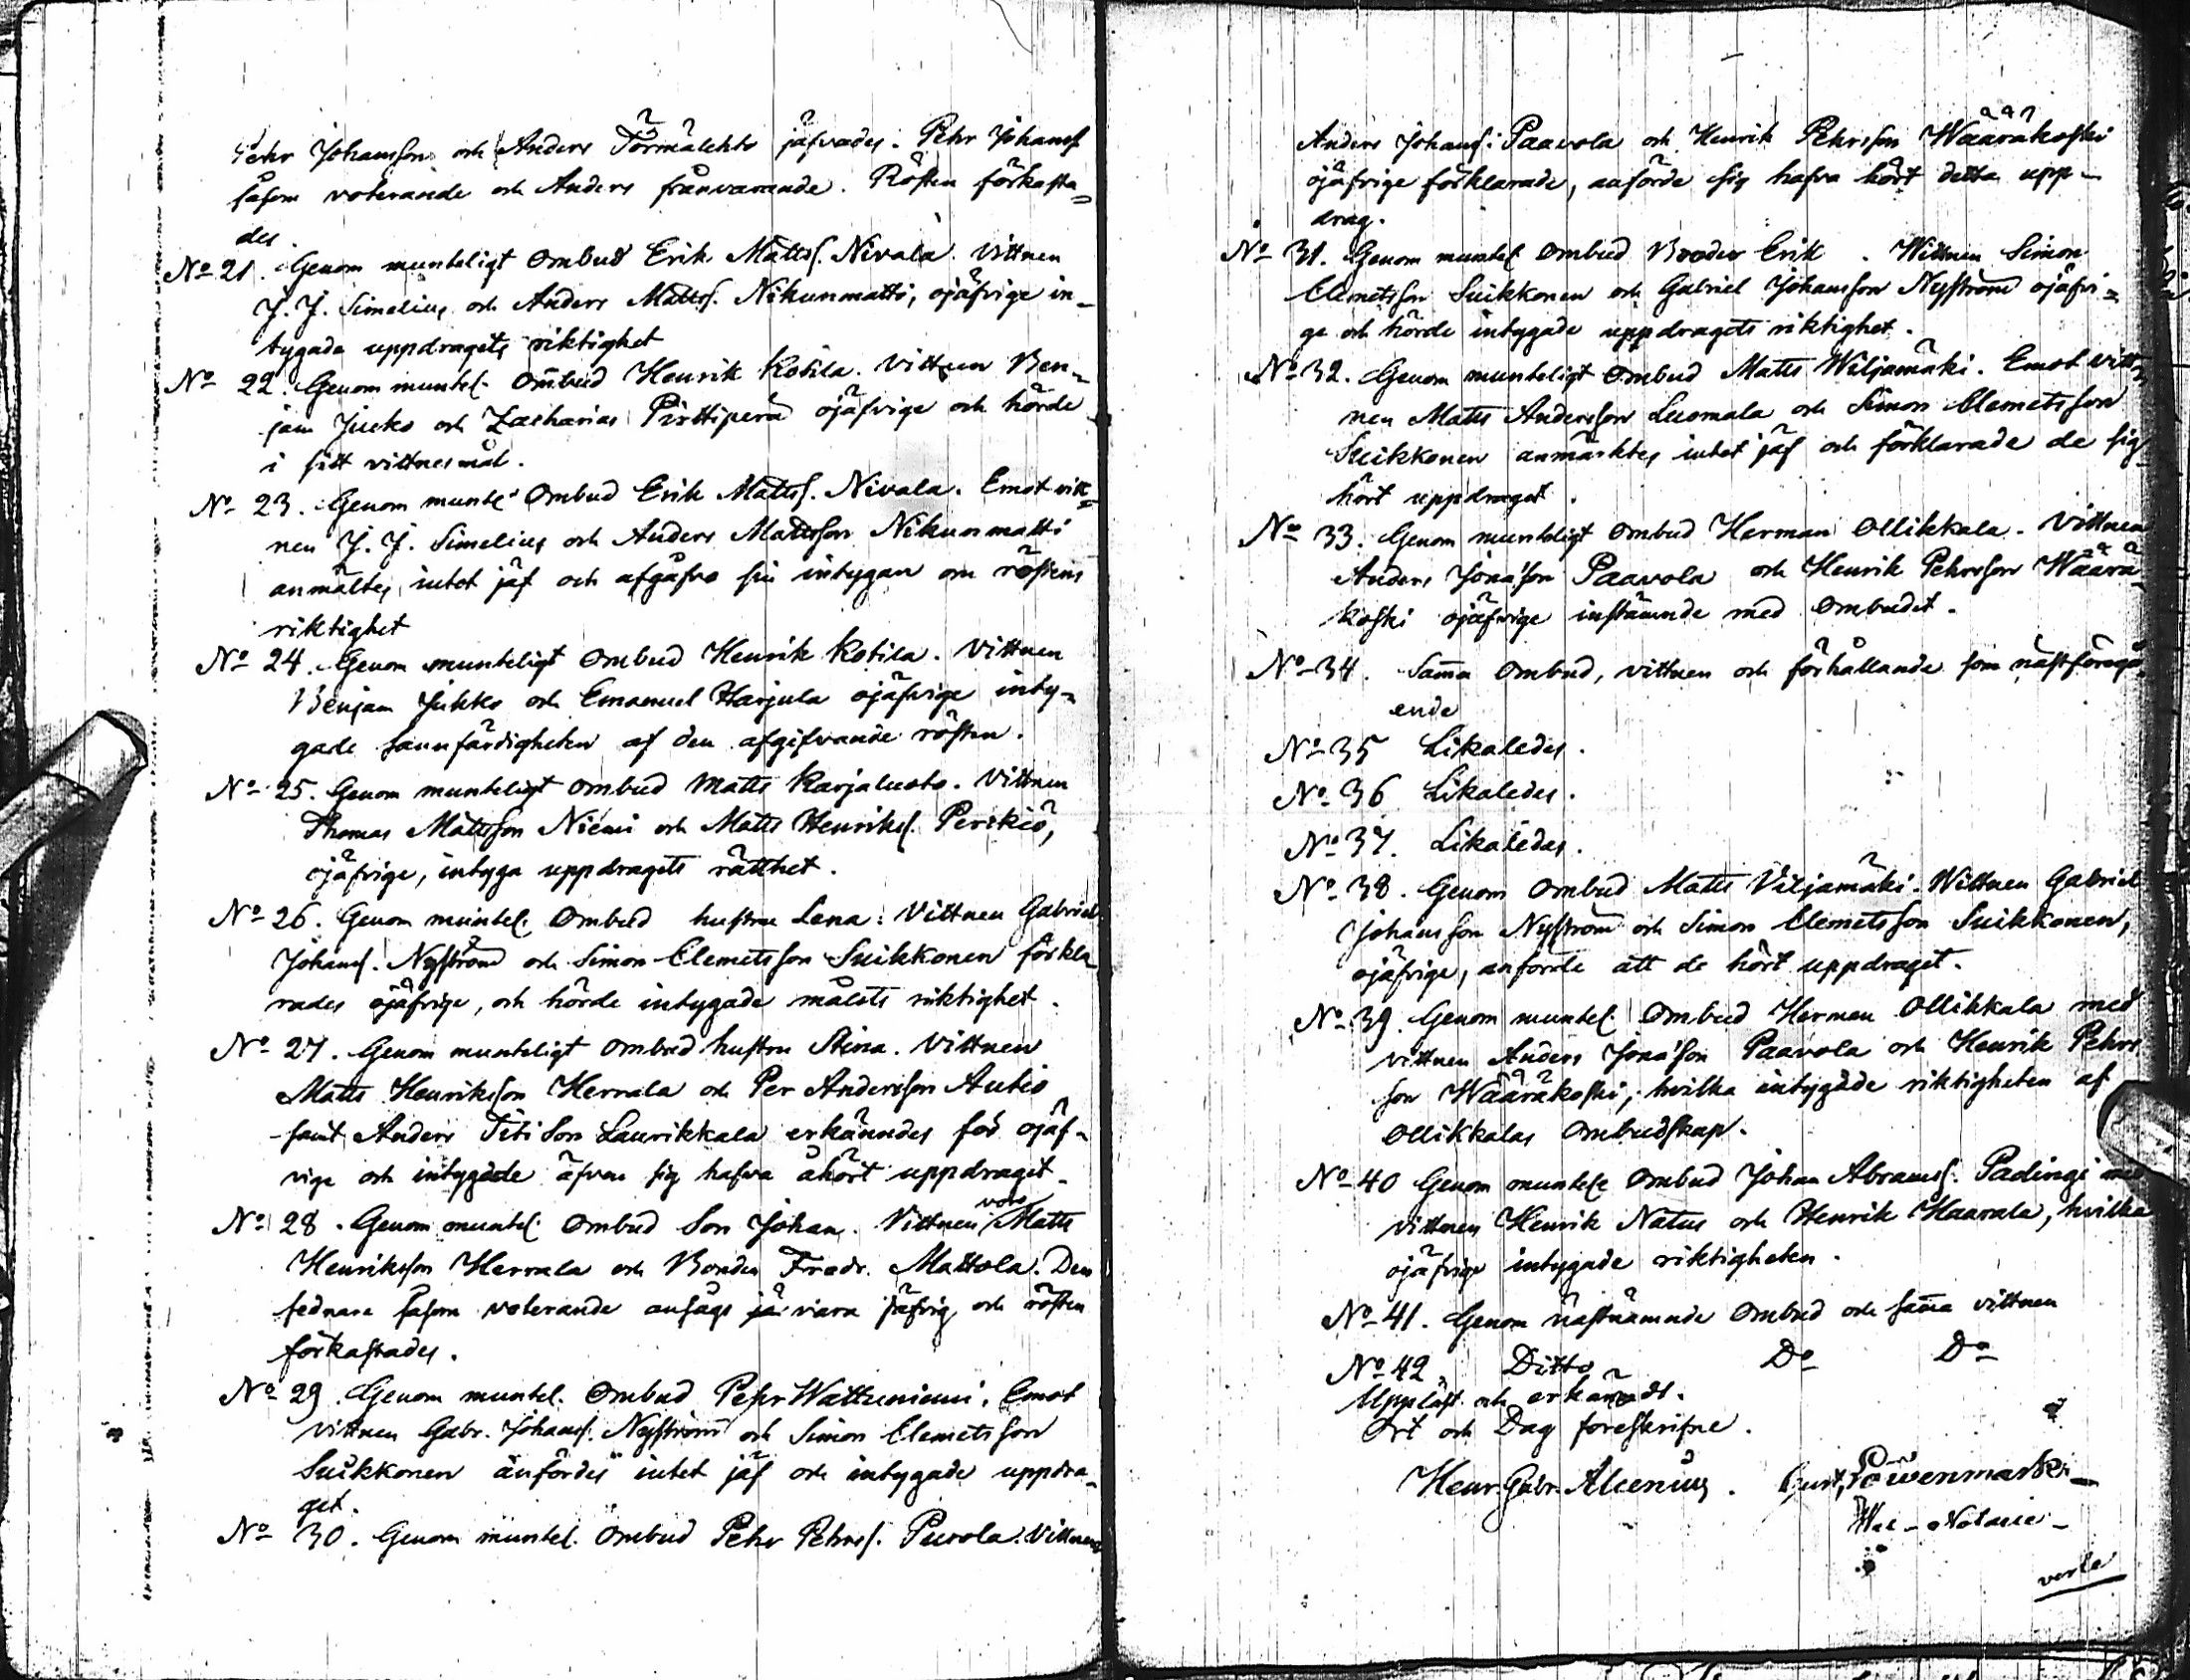 Pehr Johansson och Anders Törmälehto jäfvades. Pehr Johanss.
såsom voterande och Anders frånvarande. Rösten förkasta=
des.
No 21. Genom munteligt Ombud Erik Mattss. Nivala. Vittnen
J. J. Simelius och Anders Mattss. Nikunmatti, ojäfvige in-
tygade uppdragets riktighet
No 22. Genom muntel. Ombud Henrik Kotila. Vittnen Ben-
jam Jucko och Zacharias Pirttiperä ojäfvige och hörde
i sitt vittnesmål.
No 23. Genom muntel. Ombud Erik Mattss. Nivala. Emot vitt=
nen J. J. Simelius och Anders Mattsson Nikunmatti
anmältes intet jäf och afgåfvo sin intygan om röstens
riktighet
No 24. Genom munteligt Ombud Henrik Kotila. Vittnen
Benjam Jukko och Emanuel Harjula ojäfvige inty-
gade sannfärdigheten af den afgifvande rösten.
No 25. Genom munteligt Ombud Matts Karjaluoto. Vittnen
Thomas Mattsson Niemi och Matts Henrikss. Perkiö,
ojäfvige, intyga uppdragets rätthet.
No 26. Genom muntel. Ombud hustru Lena. Vittnen Gabriel
Johanss. Nyström och Simon Clemetsson Suikkonen förkla-
rades ojäfvige, och hörde intygade målets riktighet.
No 27. Genom munteligt Ombud hustru Stina. Vittnen
Matts Henriksson Herrala och Per Andersson Autio
samt Anders Laurikkala erkändes för ojäf-
vige och intygade äfven sig hafva åhört uppdraget.
No 28. Genom muntel. Ombud Son Johan. Vittnen voro Matts
Henriksson Herrala och Bonden Fredr. Mattola. Den
sednare såsom voterande ansågs vara jäfvig och rösten
förkastades.
No 29. Genom muntel. Ombud Pehr Wattuniemi. Emot
vittnen Gabr. Johanss. Nyström och Simon Clemetsson
Suikkonen anfördes intet jäf och intygade uppdra-
get.
No 30. Genom muntel. Ombud Pehr Pehrss. Puvola. Vittnen
Anders Johanss. Paavola och Henrik Pehrsson Wääräkoski
ojäfvige förklarade, anförde sig hafva hört detta upp-
drag.
No 31. Genom muntel. Ombud Broder Erik. Wittnen Simon
Clemetsson Suikkonen och Gabriel Johansson Nyström ojäfvi=
ge och hörde intygade uppdragets riktighet.
No 32. Genom munteligt Ombud Matts Wiljamäki. Emot vitt-
nen Matts Andersson Luomala och Simon Clemetsson
Suikkonen anmärktes intet jäf och förklarade de sig
hört uppdraget.
No 33. Genom munteligt Ombud Herman Ollikkala. Vittnen
Anders Jona'son Paavola och Henrik Pehrsson Wäärä-
koski ojäfvige instämnde med Ombudet.
No 34. Samma Ombud, vittnen och förhållande som nästföregå-
ende
No 35 Likaledes.
No 36 Likaledes.
No 37. Likaledes.
No 38. Genom Ombud Matts Viljamäki. Wittnen Gabriel
Johansson Nyström och Simon Clemetsson Suikkonen,
ojäfvige, anförde att de hört uppdraget.
No 39. Genom muntel. Ombud Herman Ollikkala med
vittnen Anders Jona'son Paavola och Henrik Pehrs
son Wääräkoski, hvilka intygade riktigheten af
Ollikkalas Ombudskap.
No 40 Genom muntel. Ombud Johan Abramss. Padingi med
vittnen Henrik Natus och Henrik Haavala, hvilka
ojäfvige intygade riktigheten.
No 41. Genom nästnämnde Ombud och samma vittnen
No 42. Ditto Do Do
Uppläst och erkändt.
Ort och Dag föreskrifne.
Henr. Gabr. Alcenius. Gust. Löwenmark
Notarie
verte